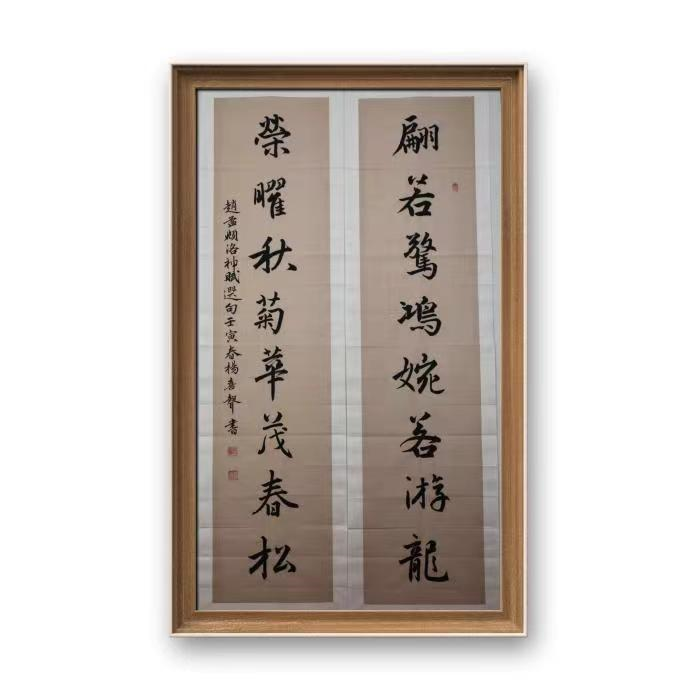 翩若驚鴻婉若游龍
榮曜秋菊華茂春松
趙孟頫洛神賦選句壬寅春楊喜聲書